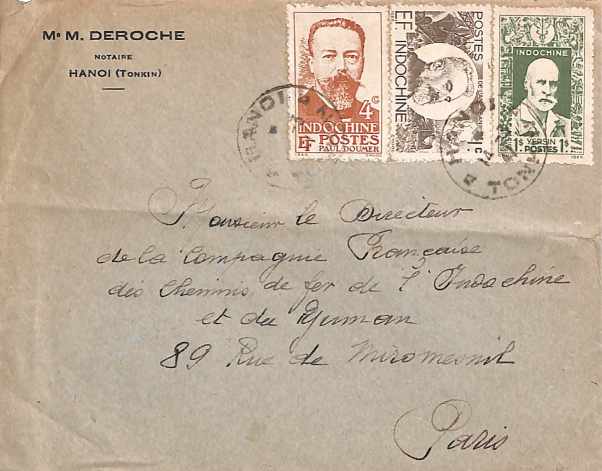 Me M. DEROCHE
NOTAIRE
HANOI (TONKIN)
4c
INDOCHINE
RF POSTES
PAUL DOUMER
POSTES
RF INDOCHINE
1c
INDOCHINE
1$ YERSIN 1$
POSTES
HANOI
TONKIN
HANOI
TONK
Monsieur le Directeur
de la Compagnie Française
des Chemins de fer de l'Indochine
et du Yunnan
89 Rue de Miromesnil
Paris